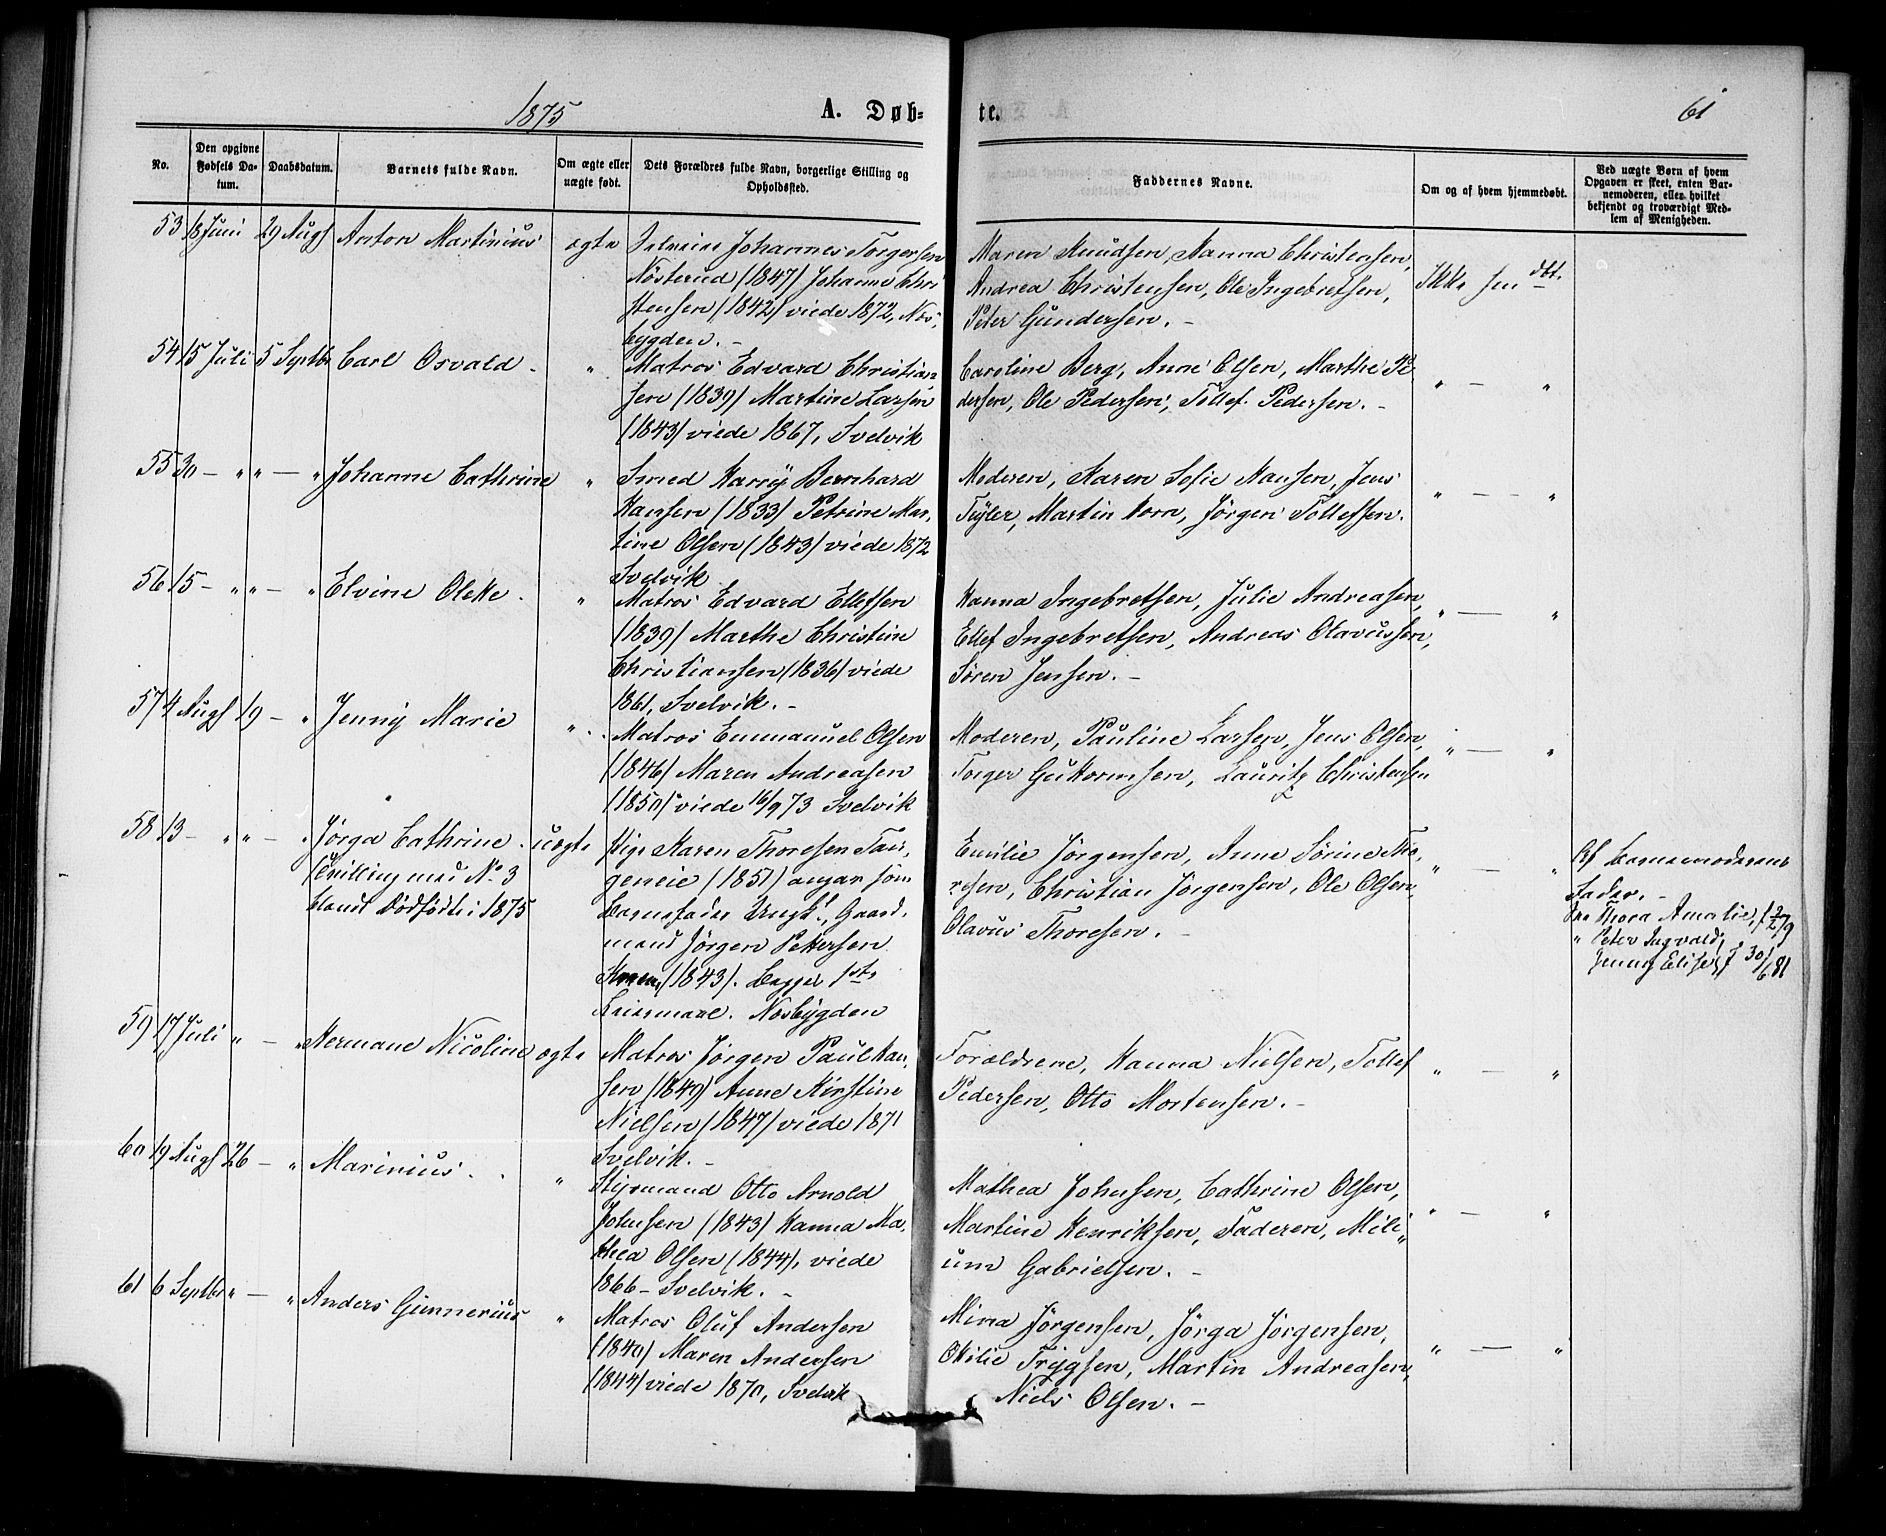 1875
A. Døb-
te.
61
No.
Den opgivne Fødsels Da-
tum.
Daabsdatum.
Barnets fulde Navn.
Om ægte eller
uægte født.
Dets Forældres fulde Navn, borgerlige Stilling og
Opholdssted.
Faddernes Navne.
Om og af hvem hjemmedøbt.
Ved uægte Børn af hvem
Opgaven er skeet, enten Bar-
nemoderen, eller hvilket
bekjendt og troværdigt Med-
lem af Menigheden.
53 6 Juni 29 Augs Anton Martinius ægte
Johannes Torgersen
Nösterud (1847) Johanne Chri
stensen (1842) viede 1872, Nös,
bygden. -
Maren Knudsen, Hanna Christensen,
Andrea Christensen, Ole Ingebretsen,
Peter Gundersen. -
Ikke hm dbt.
54 15 Juli 5 Septbr Carl Osvald. "
Matros Edvard Christian-
sen (1839) Martine Larsen
(1843) viede 1867, Svelvik
Caroline Berg, Anne Olsen, Marthe Pe
dersen, Ole Pedersen, Tollef Pedersen. -
" — "
55 30 — " " — " Johanne Cathrine "
Smed Harry Bernhard
Hansen (1833) Petrine Mar,
tine Olsen (1843) viede 1872
Svelvik
Moderen, Karen Sofie Hansen, Jens
Tryler, Martin Horn, Jörgen Tollefsen.
" — — "
56 15 — " " — " Elvine Oleke. "
Matros Edvard Ellefsen
(1839) Marthe Christine
Christiansen (1836) viede
1861, Svelvik. -
Hanna Ingebretsen, Julie Andreasen,
Ellef Ingebretsen, Andreas Olavussen,
Sören Jensen. -
" — "
57 4 Augs 19 — " Jenny Marie "
Matros Emmanuel Olsen
(1846) Maren Andreasen
(1850) viede 16/9 73 Svelvik
Moderen, Pauline Larsen, Jens Olsen,
Torger Guttormsen, Lauritz Christensen
" — "
58 13 — " " — " Jörga Cathrine. uægte
Trilling med No 3
blandt Dödfödte i 1875
Pige Karen Thoresen
(1851) angav som
Barnefader Ungk., Gaard.
mand Jörgen Pettersen
(1843). Begges 1ste
Leiermaal. Nösbygden
Emilie Jörgensen, Anne Sörine Tho-
resen, Christian Jörgensen, Ole Olsen,
Olavus Thoresen. -
" — "
Af Barnemoderens
Fader. -
Thora Amalie, f 2/79
" Peter Ingvald,
Jenny Elise, f 30/6 81
59 17 Juli " — " Hermane Nicoline ægte
Matros Jörgen Paul Han,
sen (1849) Anne Kirstine
Nielsen (1847) viede 1871
Svelvik. -
Forældrene, Hanna Nielsen, Tollef
Pedersen, Otto Mortensen. -
" — "
60 19 Augs 26 — " Marinius. "
Styrmand Otto Arnold
Johnsen (1843) Hanna Ma,
thea Olsen (1844), viede
1866 - Svelvik. -
Mathea Johnsen, Cathrine Olsen,
Martine Henriksen, Faderen, Mili,,
um Gabrielsen. -
" — "
61 6 Septbr " — " Anders Gunnerius "
Matros Oluf Andersen
(1840) Maren Andersen
(1844) viede 1870, Svelvik
Mina Jörgensen, Jörga Jörgensen,
Otilie Trygsen, Martin Andreasen,
Niels Olsen. -
" — "